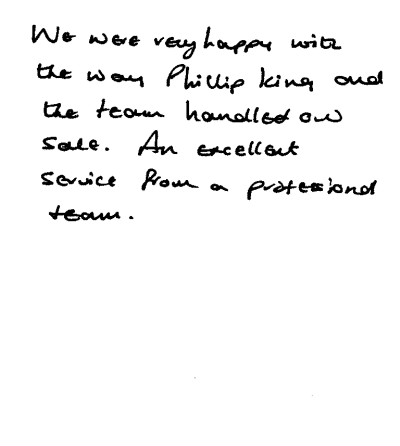 We were very happy with
the way Phillip King and
the team handled our
sale. An excellent
service from a professional
team.